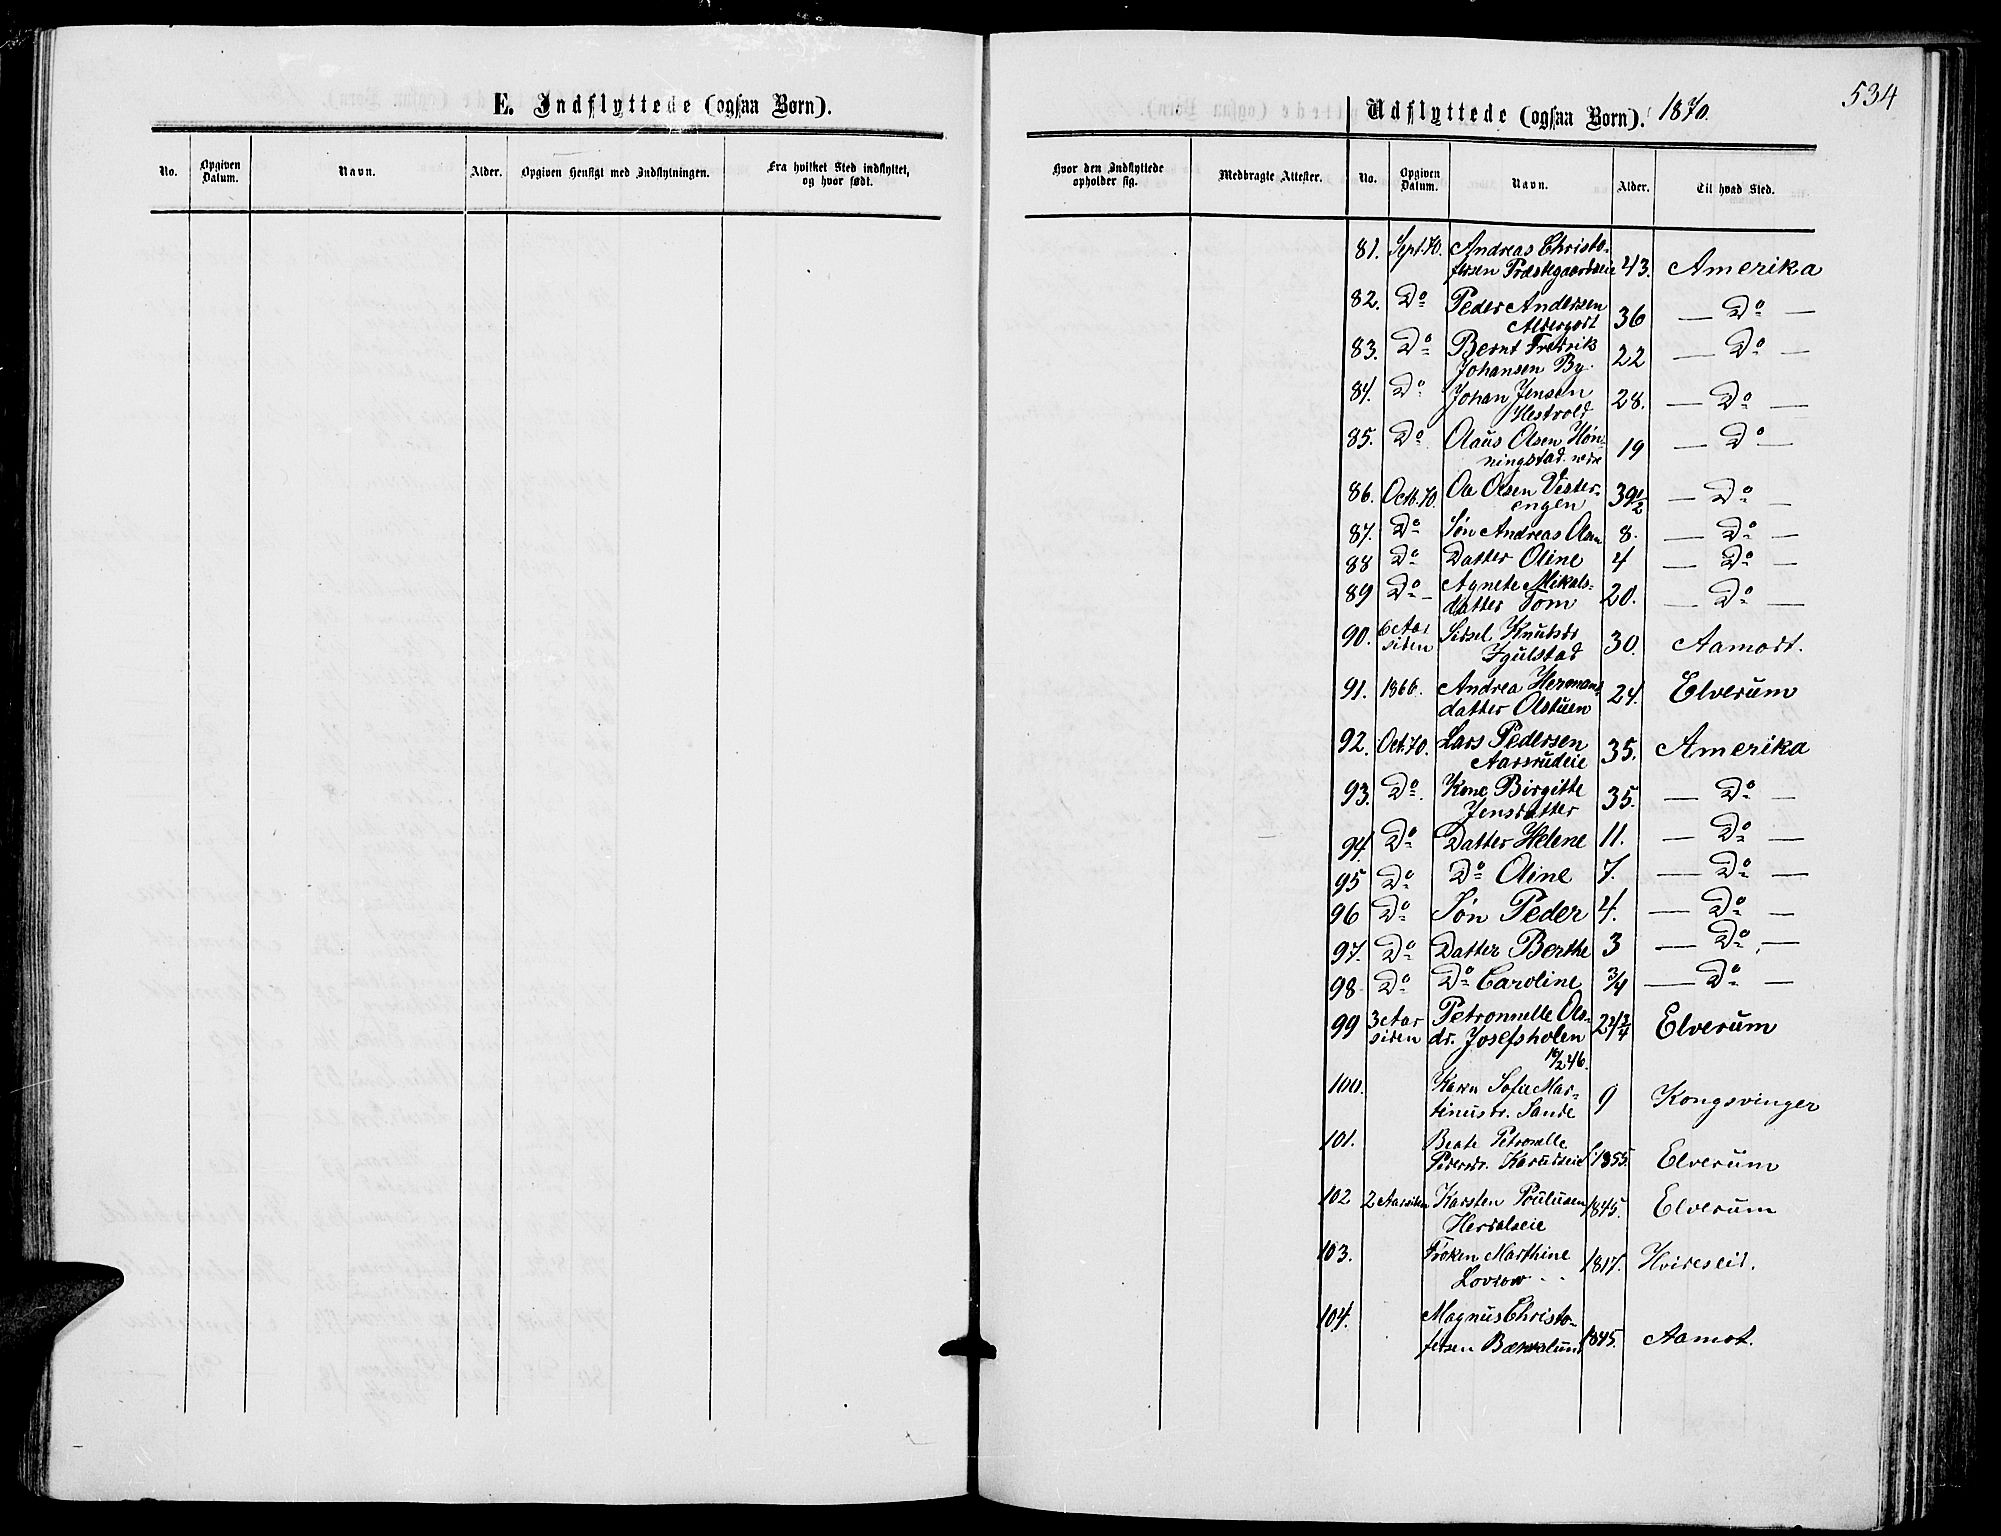 E. Indflyttede (ogsaa Børn).
No. Opgiven Datum. Navn. Alder. Opgiven Hensigt med Indflytningen. Fra hvilket Sted indflyttet, og hvor født.
534
Udflyttede (ogsaa Børn). 1870.
Hvor den Indflyttede opholder sig. Medbragte Attester. No. Opgiven Datum. Navn. Alder. Til hvad Sted.
81. Sept. 70. Andreas Christo-
fersen Præstegaardseie 43. Amerika
82. Do Peder Andersen
Aldergodt 36 — Do —
83. Do Bernt Fredrik
Johansen By. 22 — Do —
84. Do Johan Jensen
Hestvold 28. — Do —
85. Do Olaus Olsen Høn-
ningstad nedre 19 — Do —
86. Octb. 70. Ole Olsen Vester-
engen 39 1/2 — Do —
87. Do Søn Andreas Olsen 8. — Do —
88 Do Datter Oline 4 — Do —
89 Do Agnete Mikals-
datter Tom 20. — Do —
90. 6 Aar
siden Sidsel Knudsdr
Igulstad 30. Aamodt.
91. 1866. Andrea Hermans
datter Olstuen 24. Elverum
92. Oct. 70. Lars Pedersen
Aasrudeie 35. Amerika
93. Do Kone Birgitte
Jensdatter 35. — Do —
94. Do Datter Helene 11. — Do —
95 Do Do Oline 7. — Do —
96 Do Søn Peder 4. — Do —
97. Do Datter Berthe 3 — Do —
98. Do Do Caroline 3/4 — Do —
99 3 Aar
siden Petronnelle Ols-
dr. Josefsholen 24 3/4 Elverum
16/2 46.
100. Karen Sofie Mar-
tinusdr. Sande 9 Kongsvinger
101. Beate Petronelle
Pedersdr. 1855. Elverum
102 2 Aar siden Karsten Poulusen
Herdalseie 1845. Elverum
103. Frøken Marthine
Lovrow 1817. Hvideseid.
104. Magnus Christo-
fersen Bækkelund 1845. Aamot.